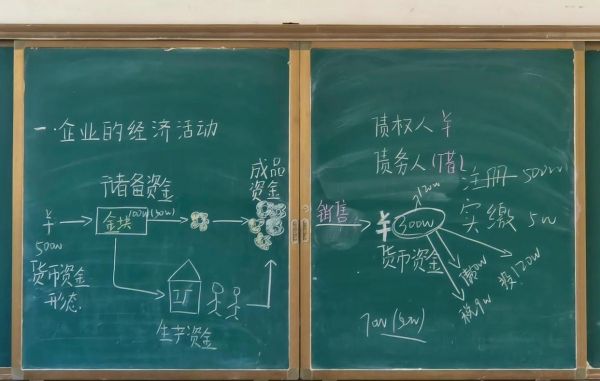 一.企业的经济活动
储备资金
成品
资金
¥
金块
500w
货币资金
形态
工厂
生产资金
债权人 ¥
债务人(借)
销售
¥
300w
货币资金
注册 5000w
实缴 5w
120w
税9w
投120w
70w(50w)